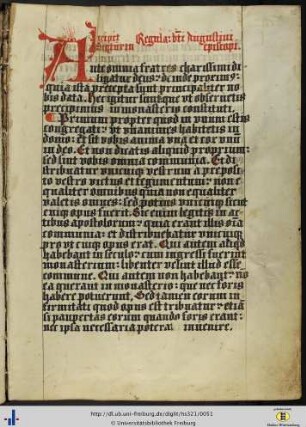 Incipit Regula: bti Augustini
episcopi.
Ante omnia fratres charissimi di
ligatur deus: deinde proximus:
quia ista precepta sunt principaliter no
bis data. Hec igitur sunt que ut obseruetis
precipimus in monasterio constituti.
Primum propter quod in vnum estis
congregati: vt vnanimes habitetis in
domo: et sit vobis anima vna et cor vnum
in deo. Et non dicatis aliquid proprium:
sed sint vobis omnia communia. Et di
stribuatur vnicuique vestrum a preposi
to vestro victus et tegumentum: non e
qualiter omnibus quia non equaliter
valetis omnes: sed potius vnicuique sicut
cuique opus fuerit. Sic enim legitis in ac
tibus apostolorum: quia erant illis omnia
communia: et distribuebatur vnicuique
pro vt cuique opus erat. Qui autem aliquid
habebant in seculo: cum ingressi fuerint
monasterium: libenter velint illud esse
commune. Qui autem non habebant: no
ea querant in monasterio: que nec foris
habere potuerunt. Sed tamen eorum in
firmitati quod opus est tribuatur: etiam
si paupertas eorum quando foris erant:
nec ipsa necessaria poterat inuenire.
http://dl.ub.uni-freiburg.de/diglit/hs321/0051
© Universitätsbibliothek Freiburg